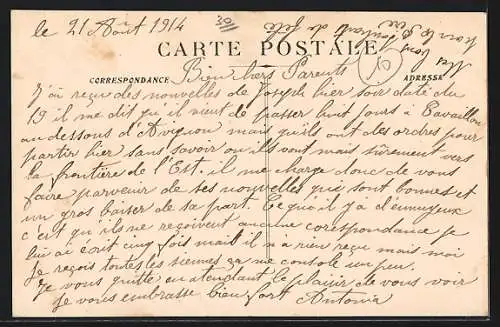 le 21 Août 1914
30
Mes bons souhaits de fête
pour le père
CARTE POSTALE
10
CORRESPONDANCE
ADRESSE
Bien chers Parents
J'ai reçue des nouvelles de Joseph hier soir daté du
19 il me dit qu'il vient de passer huit jours à Cavaillon
au dessous d'Avignon mais qu'ils ont des ordres pour
partir hier sans savoir ou ils vont mais sûrement vers
la frontière de l'Est. il me charge donc de vous
faire parvenir de ses nouvelles qui sont bonnes et
un gros baiser de sa part. Ce qu'il y a d'ennuyeux
c'est qu'ils ne reçoivent aucune corespondance je
lui ai écrit cinq fois mais il n'a rien reçu mais moi
je reçois toutes les siennes ça me console un peu.
Je vous quitte en attendant le plaisir de vous voir
je vous embrasse bien fort Antonia